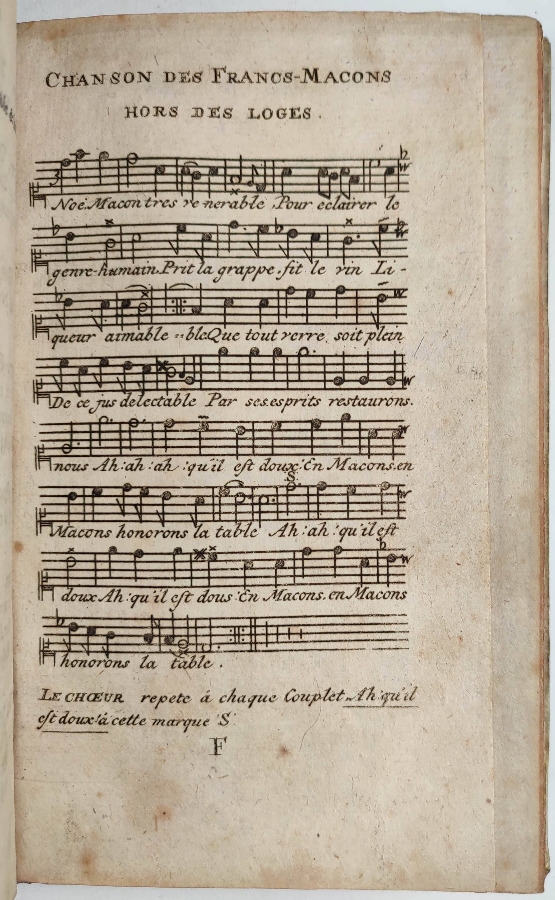 CHANSON DES FRANCS-MACONS
HORS DES LOGES.
Noé Macon tres ve nerable Pour éclairer le
genre-humain Prit la grappe. fit le vin Li-
queur aimable =ble Que tout verre soit plein
De ce jus delectable Par ses esprits restaurons.
nous Ah: ah: ah: qu'il est doux: En Macons. en
S
Macons honorons la table Ah: ah: qu'il est
doux Ah: qu'il est dous: En Macons. en Macons
honorons la table.
LE CHŒUR repete á chaque Couplet Ah: qu'il
est doux: á cette marque S
F